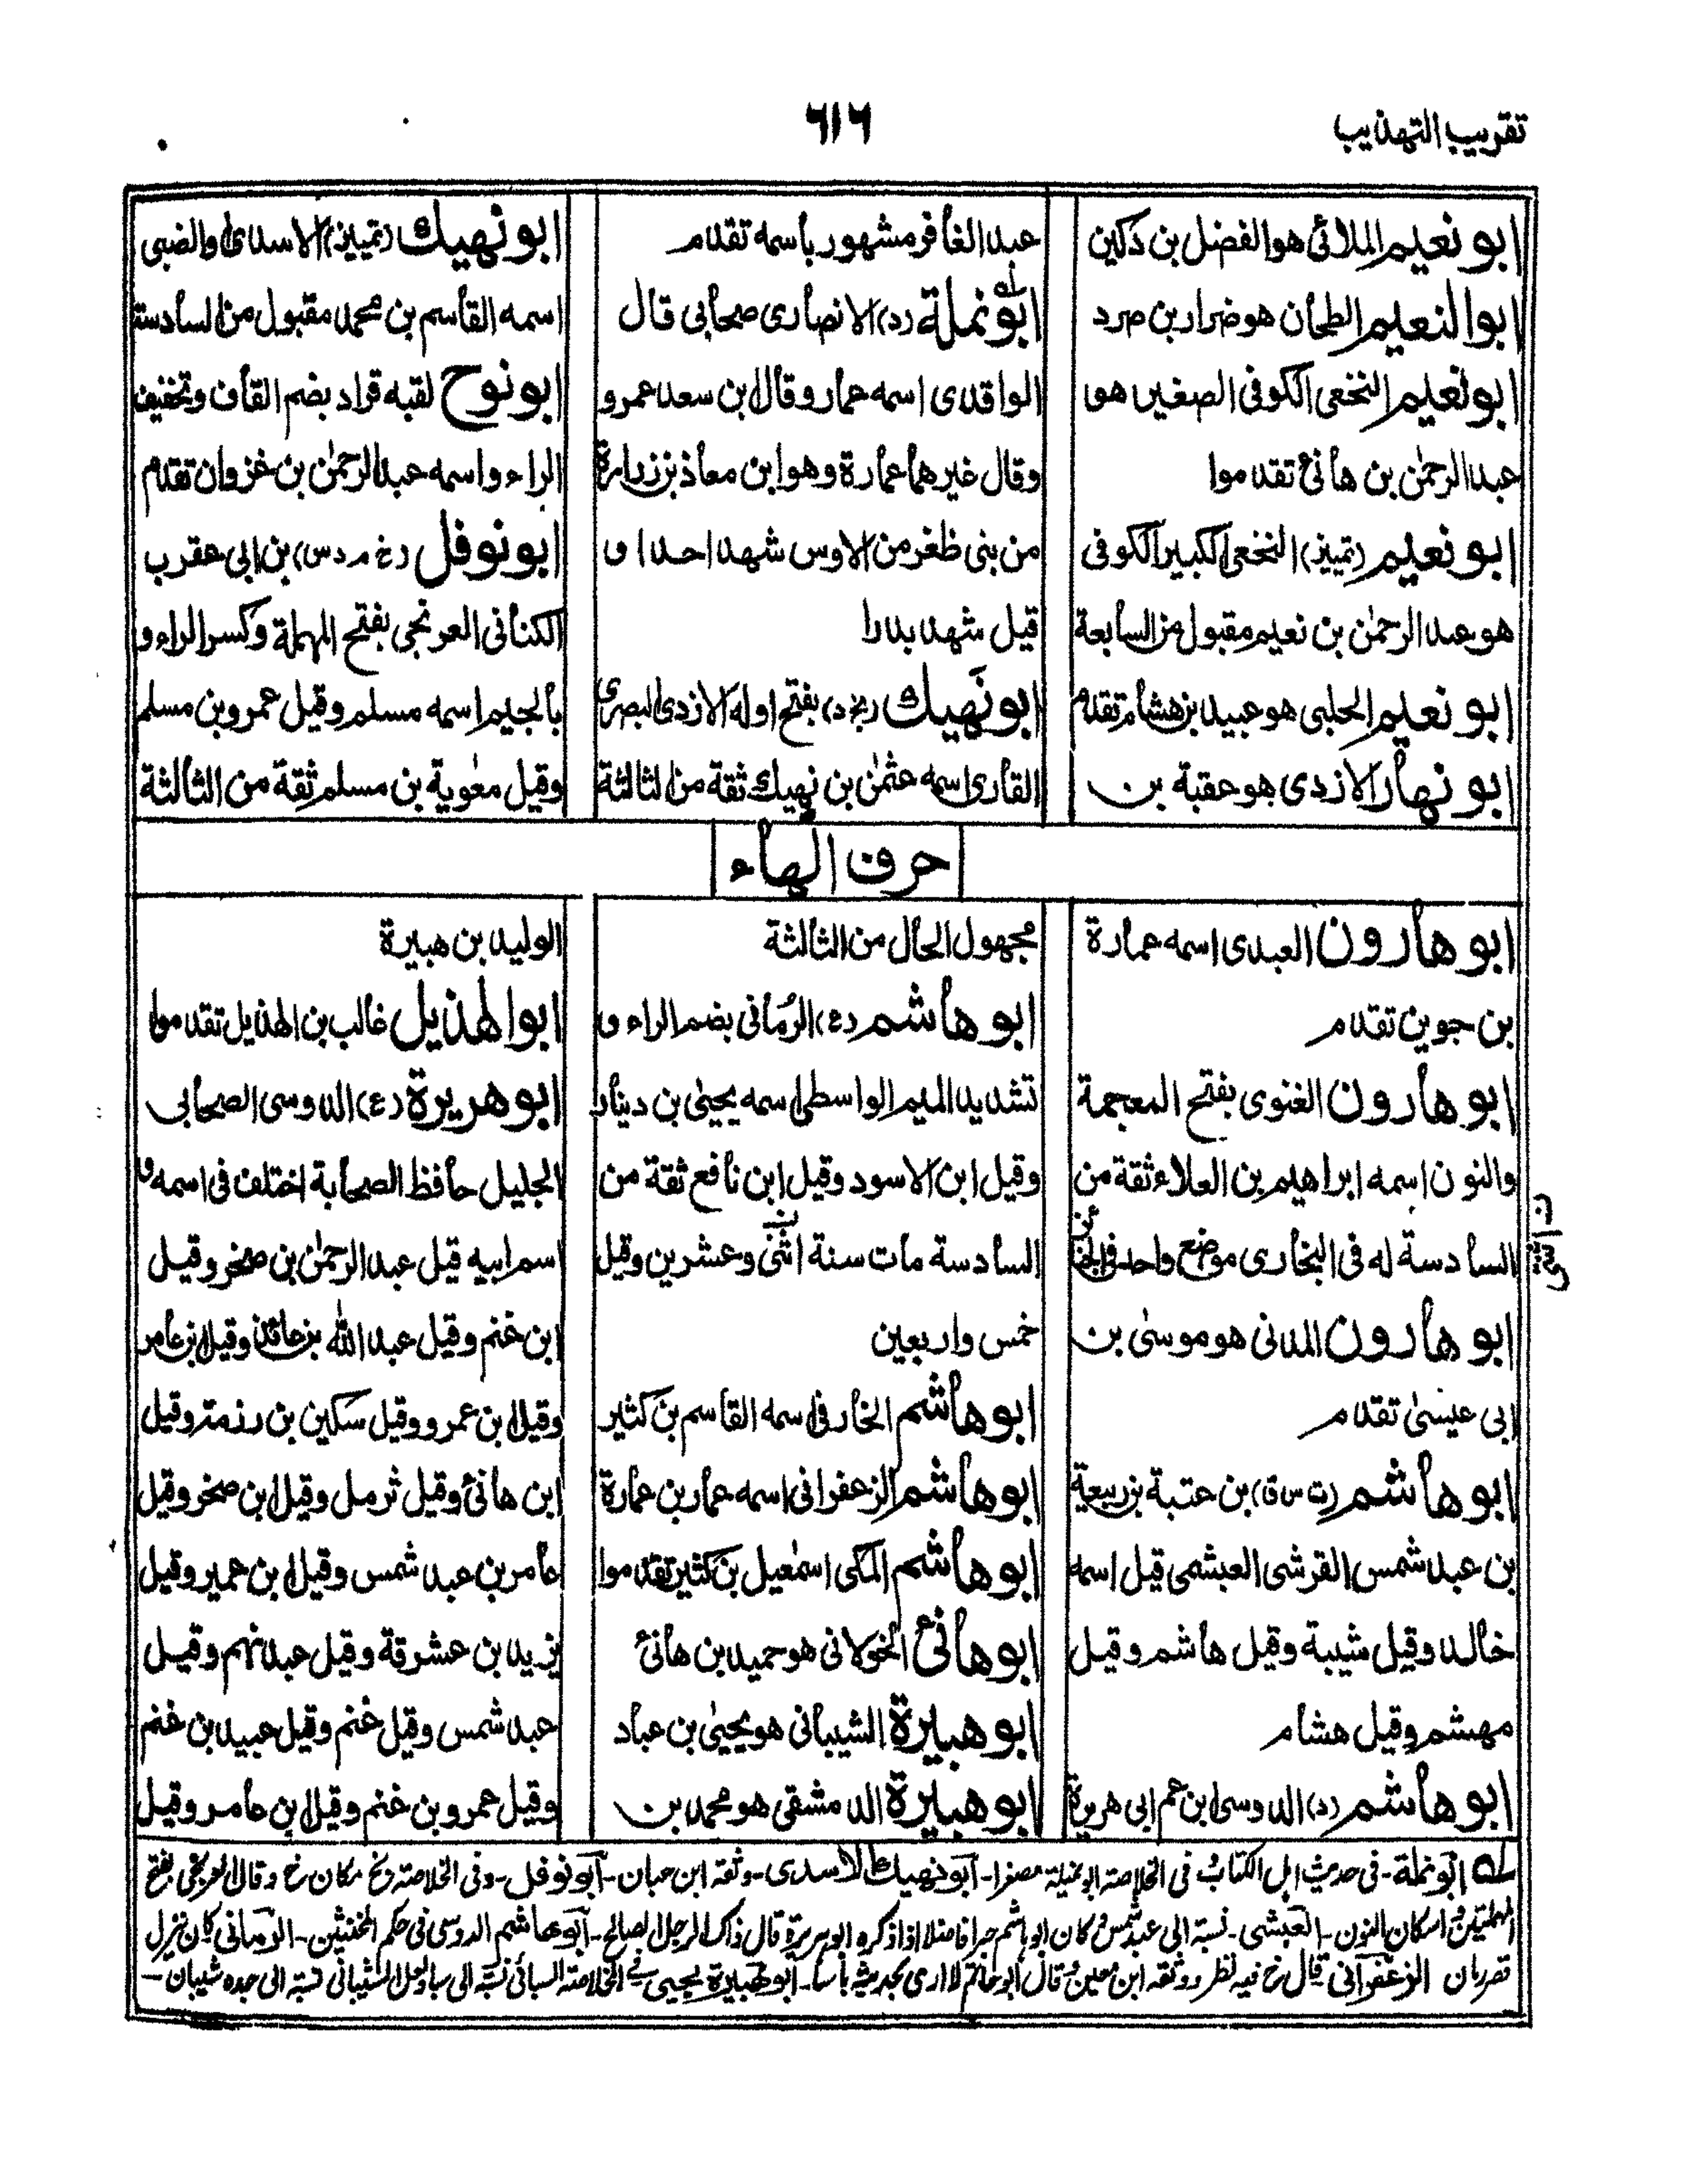 تقريب التهذيب
٦١٦
ابو نعيم الملائى هو الفضل بن دكين
ابو النعيم الطحان هو ضرار بن صرد
ابو نعيم النخعى الكوفى الصغير هو
عبد الرحمٰن بن هانئ تقدموا
ابو نعيم (تمييز) النخعى الكبير الكوفى
هو عبد الرحمٰن بن نعيم مقبول من السابعة
ابو نعيم الحلبى هو عبيد بن هشام تقدم
ابو نهار الازدى هو عقبة بن
عبد الغافر مشهور باسمه تقدم
ابو نملة (د) الانصارى صحابى قال
الواقدى اسمه عمار وقال ابن سعد عمرو
وقال غيرهما عمارة وهو ابن معاذ بن زرارة
من بنى ظفر من الاوس شهد احدا و
قيل شهد بدرا
ابو نَهيك (بخ د) بفتح اوله الازدى البصرى
القارى اسمه عثمٰن بن نهيك ثقة من الثالثة
ابو نهيك (تمييز) الاسدى او الضبى
اسمه القاسم بن محمد مقبول من السادسة
ابو نوح لقبه قراد بضم القاف وتخفيف
الراء واسمه عبد الرحمٰن بن غزوان تقدم
ابو نوفل (خ م د س) بن ابى عقرب
الكنانى العرنجى بفتح المهملة وكسر الراء و
بالجيم اسمه مسلم وقيل عمرو بن مسلم
وقيل معٰوية بن مسلم ثقة من الثالثة
حرف الهاء
ابو هارون العبدى اسمه عمارة
بن جوين تقدم
ابو هارون الغنوى بفتح المعجمة
والنون اسمه ابراهيم بن العلاء ثقة من
السادسة له فى البخارى موضع واحد فى
ابو هارون المدنى هو موسىٰ بن
ابى عيسىٰ تقدم
ابو هاشم (ت س ق) بن عتبة بن ربيعة
بن عبد شمس القرشى العبشمى قيل اسمه
خالد وقيل شيبة وقيل هاشم وقيل
مهشم وقيل هشام
ابو هاشم (د) الدوسى ابن عم ابى هريرة
مجهول الحال من الثالثة
ابو هاشم (ع) الرُمانى بضم الراء و
تشديد الميم الواسطى اسمه يحيىٰ بن دينار
وقيل ابن الاسود وقيل ابن نافع ثقة من
السادسة مات سنة اثنى وعشرين وقيل
خمس واربعين
ابو هاشم الخارفى اسمه القاسم بن كثير
ابو هاشم الزعفرانى اسمه عمار بن عمارة
ابو هاشم المكى اسمٰعيل بن كثير تقدموا
ابو هانئ الخولانى هو حميد بن هانئ
ابو هبيرة الشيبانى هو يحيىٰ بن عباد
ابو هبيرة الدمشقى هو محمد بن
الوليد بن هبيرة
ابو الهذيل غالب بن الهذيل تقدموا
ابو هريرة (ع) الدوسى الصحابى
الجليل حافظ الصحابة اختلف فى اسمه و
اسم ابيه قيل عبد الرحمٰن بن صخر وقيل
ابن غنم وقيل عبد الله بن عائذ وقيل ابن عامر
وقيل ابن عمرو وقيل سكين بن رزمة وقيل
ابن هانئ وقيل ثرمل وقيل ابن صخر وقيل
عامر بن عبد شمس وقيل ابن عمير وقيل
يزيد بن عشرقة وقيل عبد نهم وقيل
عبد شمس وقيل غنم وقيل عبيد بن غنم
وقيل عمرو بن غنم وقيل ابن عامر وقيل
له ابو نملة - فى حديث اهل الكتاب فى الخلاصة ابو نميلة مصغرا - ابو نهيك الاسدى - وثقه ابن حبان - ابو نوفل - وفى الخلاصة بخ مكان خ وقال العريجى بفتح
المهملتين واسكان النون - العبشمى - نسبة الى عبد شمس وكان ابو هاشم حبرا فاضلا اذا ذكره ابو هريرة قال ذاك الرجل الصالح - ابو هاشم الدوسى فى حكم المخنثين - الرمانى كان ينزل
قصر رمان الزعفرانى قال خ فيه نظر ووثقه ابن معين وقال ابو حاتم لا ارى بحديثه باسا - ابو هبيرة يحيى فى الخلاصة السبائى نسبة الى سبا ولعل الشيبانى نسبة الى جده شيبان -